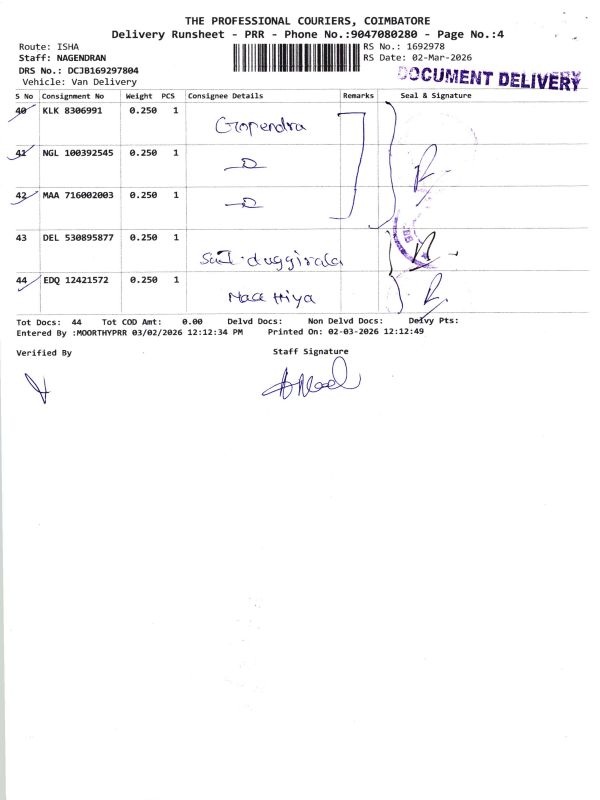 THE PROFESSIONAL COURIERS, COIMBATORE
Delivery Runsheet - PRR - Phone No.:9047080280 - Page No.:4
Route: ISHA RS No.: 1692978
Staff: NAGENDRAN RS Date: 02-Mar-2026
DRS No.: DCJB169297804
Vehicle: Van Delivery
DOCUMENT DELIVERY
S No Consignment No Weight PCS Consignee Details Remarks Seal & Signature
40 KLK 8306991 0.250 1 Gopendra
41 NGL 100392545 0.250 1
42 MAA 716002003 0.250 1
43 DEL 530895877 0.250 1 Sai duggirala
44 EDQ 12421572 0.250 1
Tot Docs: 44 Tot COD Amt: 0.00 Delvd Docs: Non Delvd Docs: Delvy Pts:
Entered By :MOORTHYPRR 03/02/2026 12:12:34 PM Printed On: 02-03-2026 12:12:49
Verified By Staff Signature